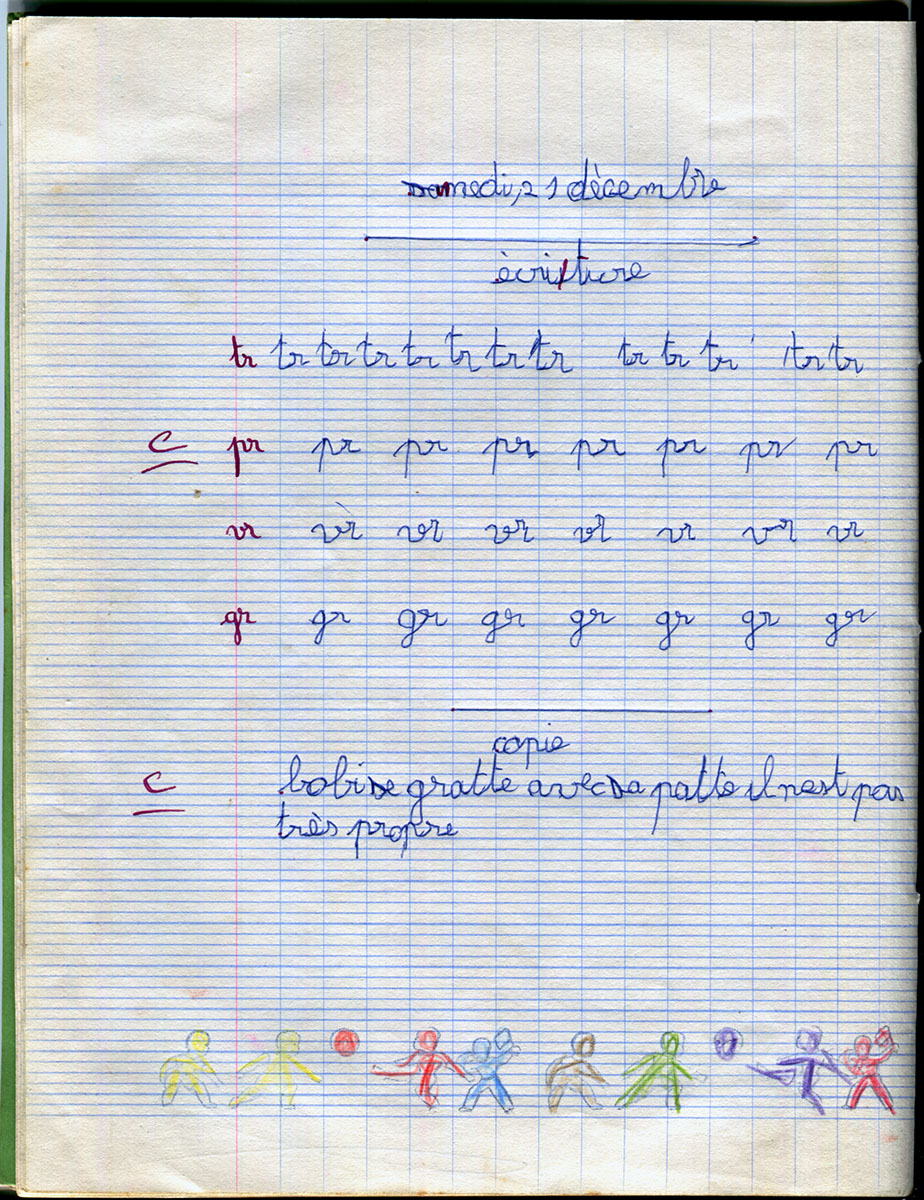 samedi, 21 décembre
écriture
tr tr tr tr tr tr tr tr tr tr tr tr tr
c pr pr pr pr pr pr pr pr
vr vr vr vr vr vr vr vr
gr gr gr gr gr gr gr gr
copie
c bobi se gratte avec sa patte il nest pas
très propre